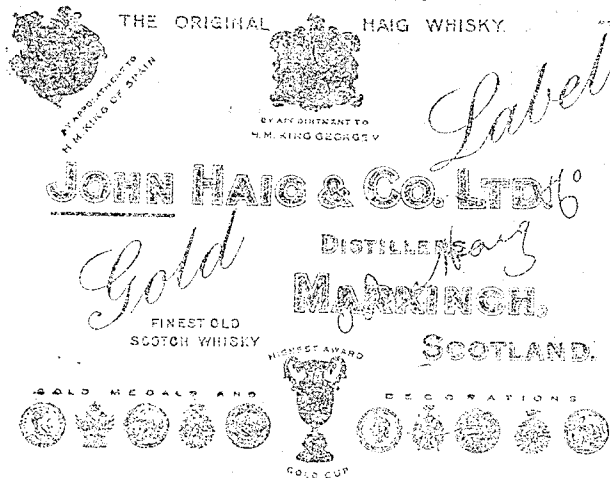 THE ORIGINAL HAIG WHISKY.
BY APPOINTMENT TO
H.M. KING OF SPAIN
BY APPOINTMENT TO
H.M. KING GEORGE V
Label
JOHN HAIG & CO. LTD
DISTILLERS
Gold
MARKINCH,
FINEST OLD
SCOTCH WHISKY
SCOTLAND.
HIGHEST AWARD
GOLD MEDALS AND DECORATIONS
GOLD CUP